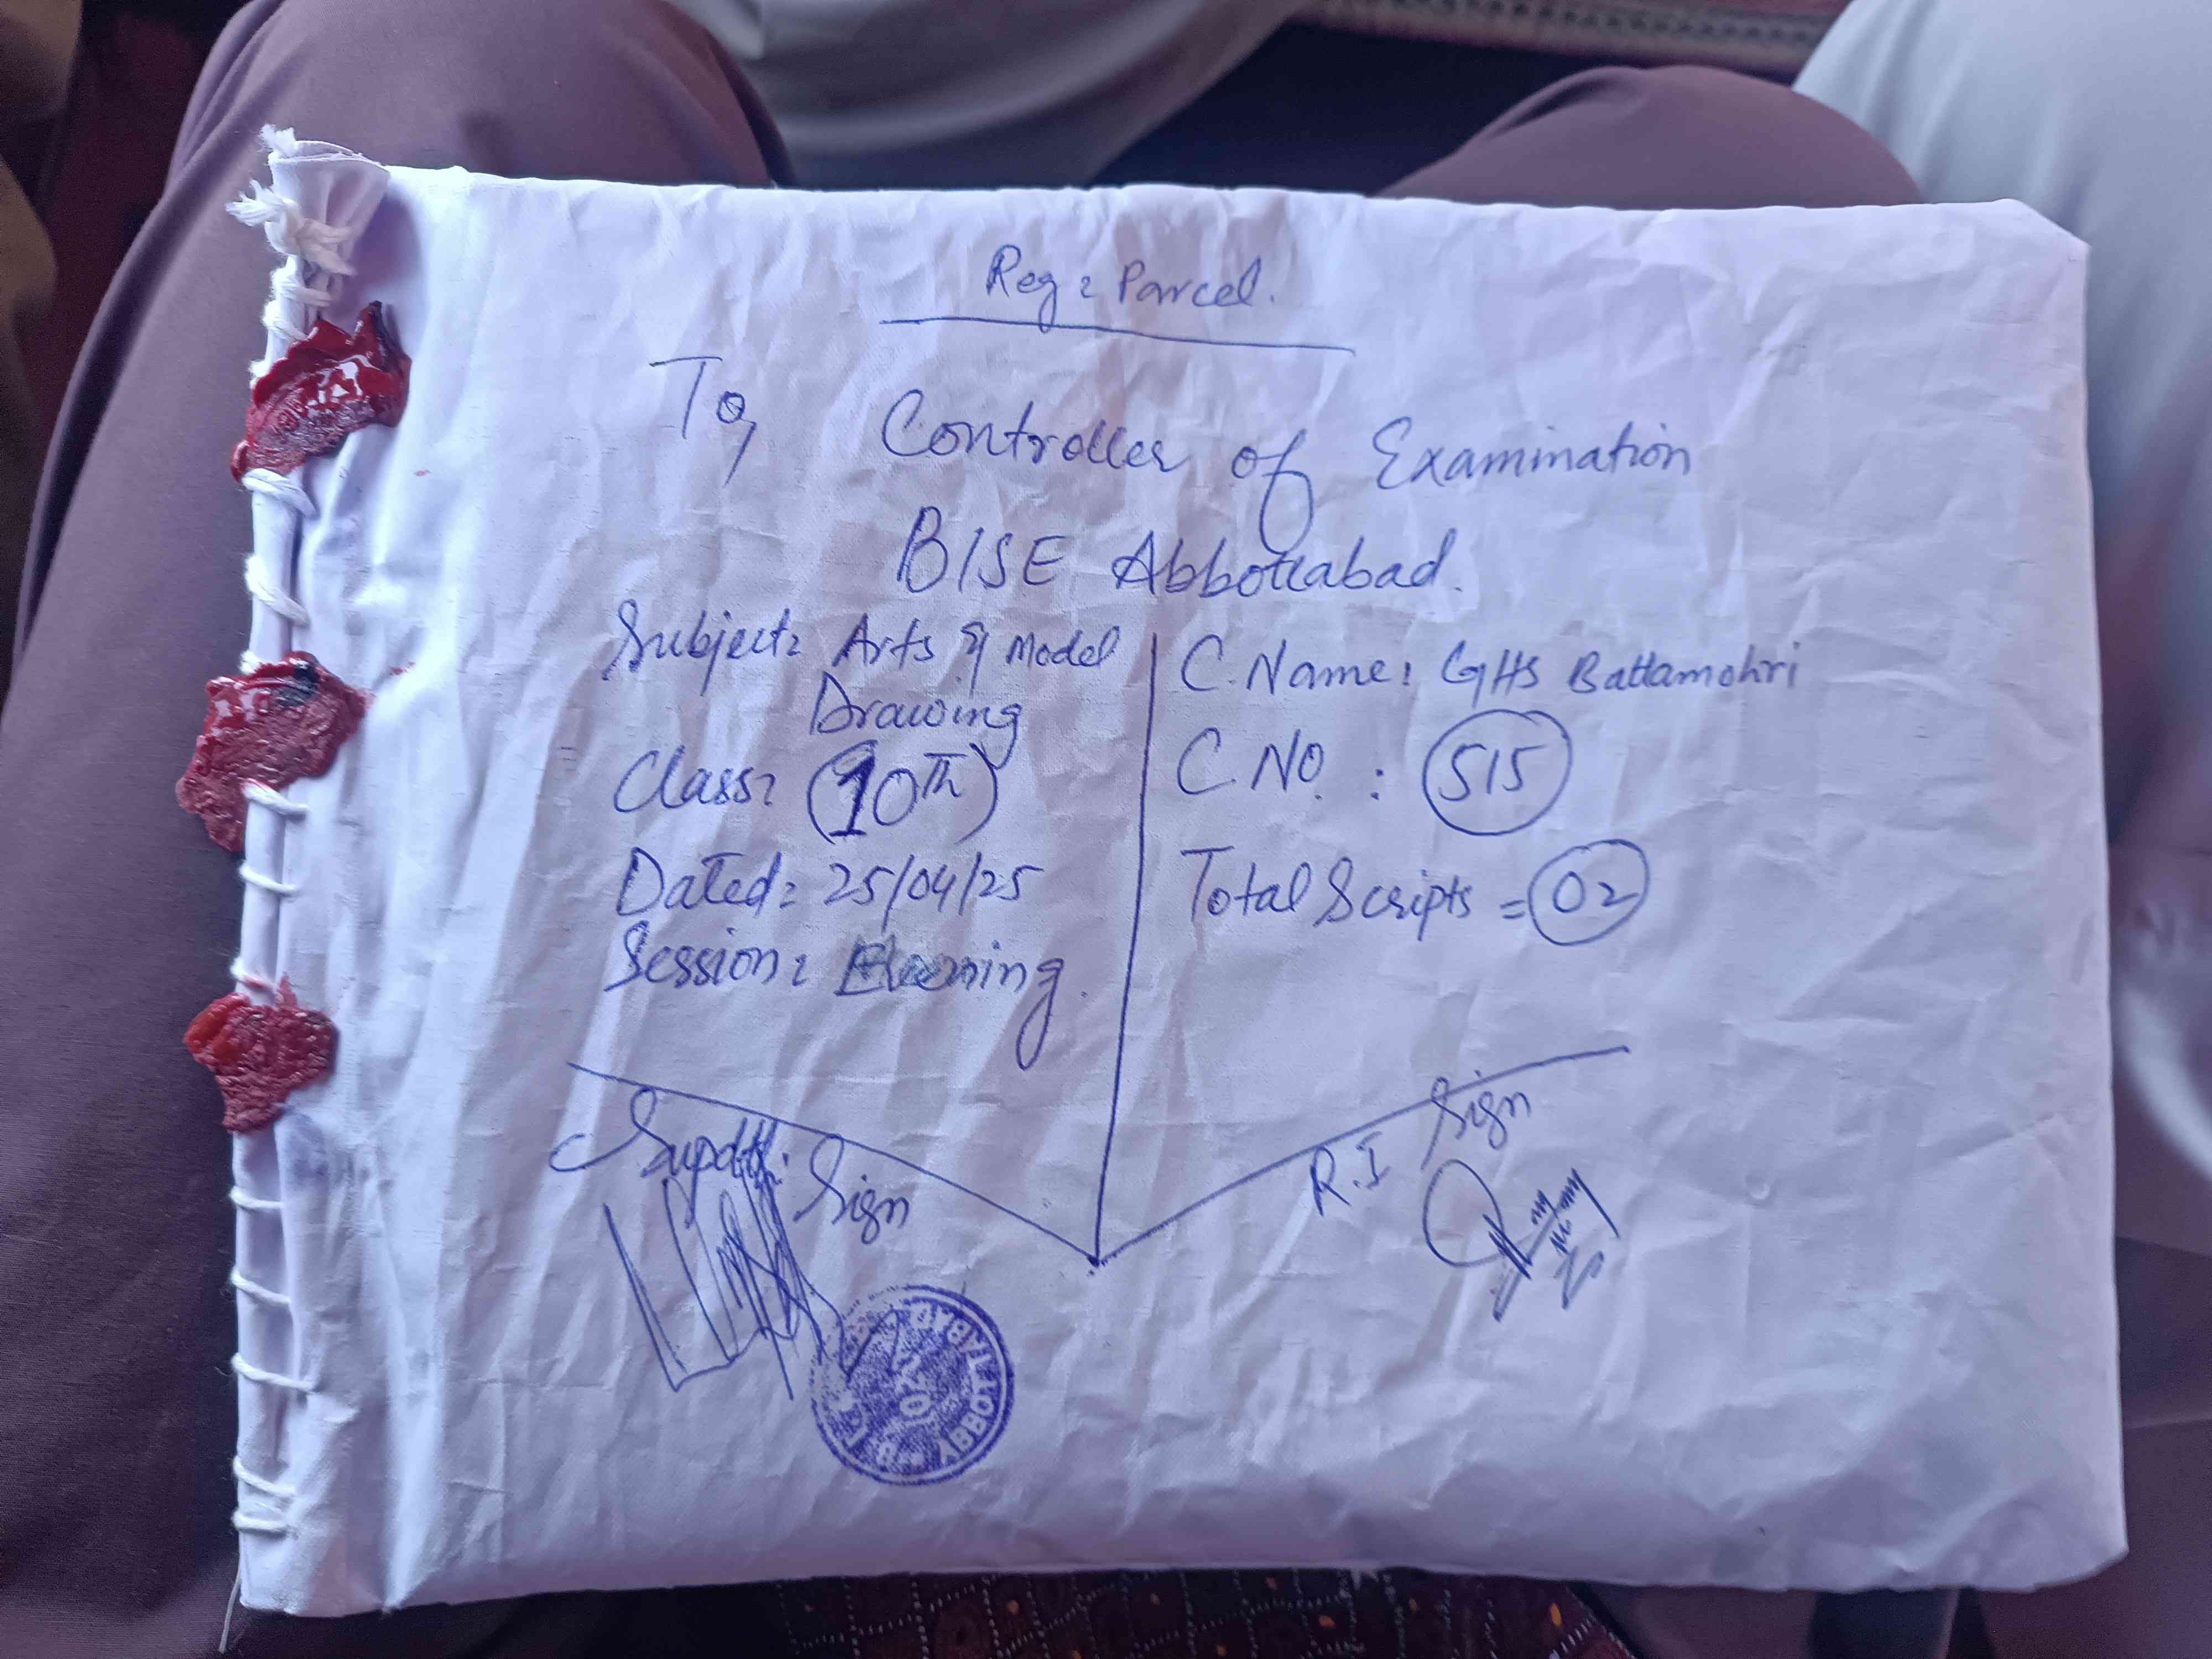 Reg: Parcel.
To,
Controller of Examination
BISE Abbottabad.
Subject: Arts & Model
Drawing
Class: (10Th)
Dated: 25/04/25
Session: Evening.
C. Name: GHS Battamohri
C. NO. : 515
Total Scripts = 02
Supdtt. Sign
R.I Sign
ABBOTTABAD